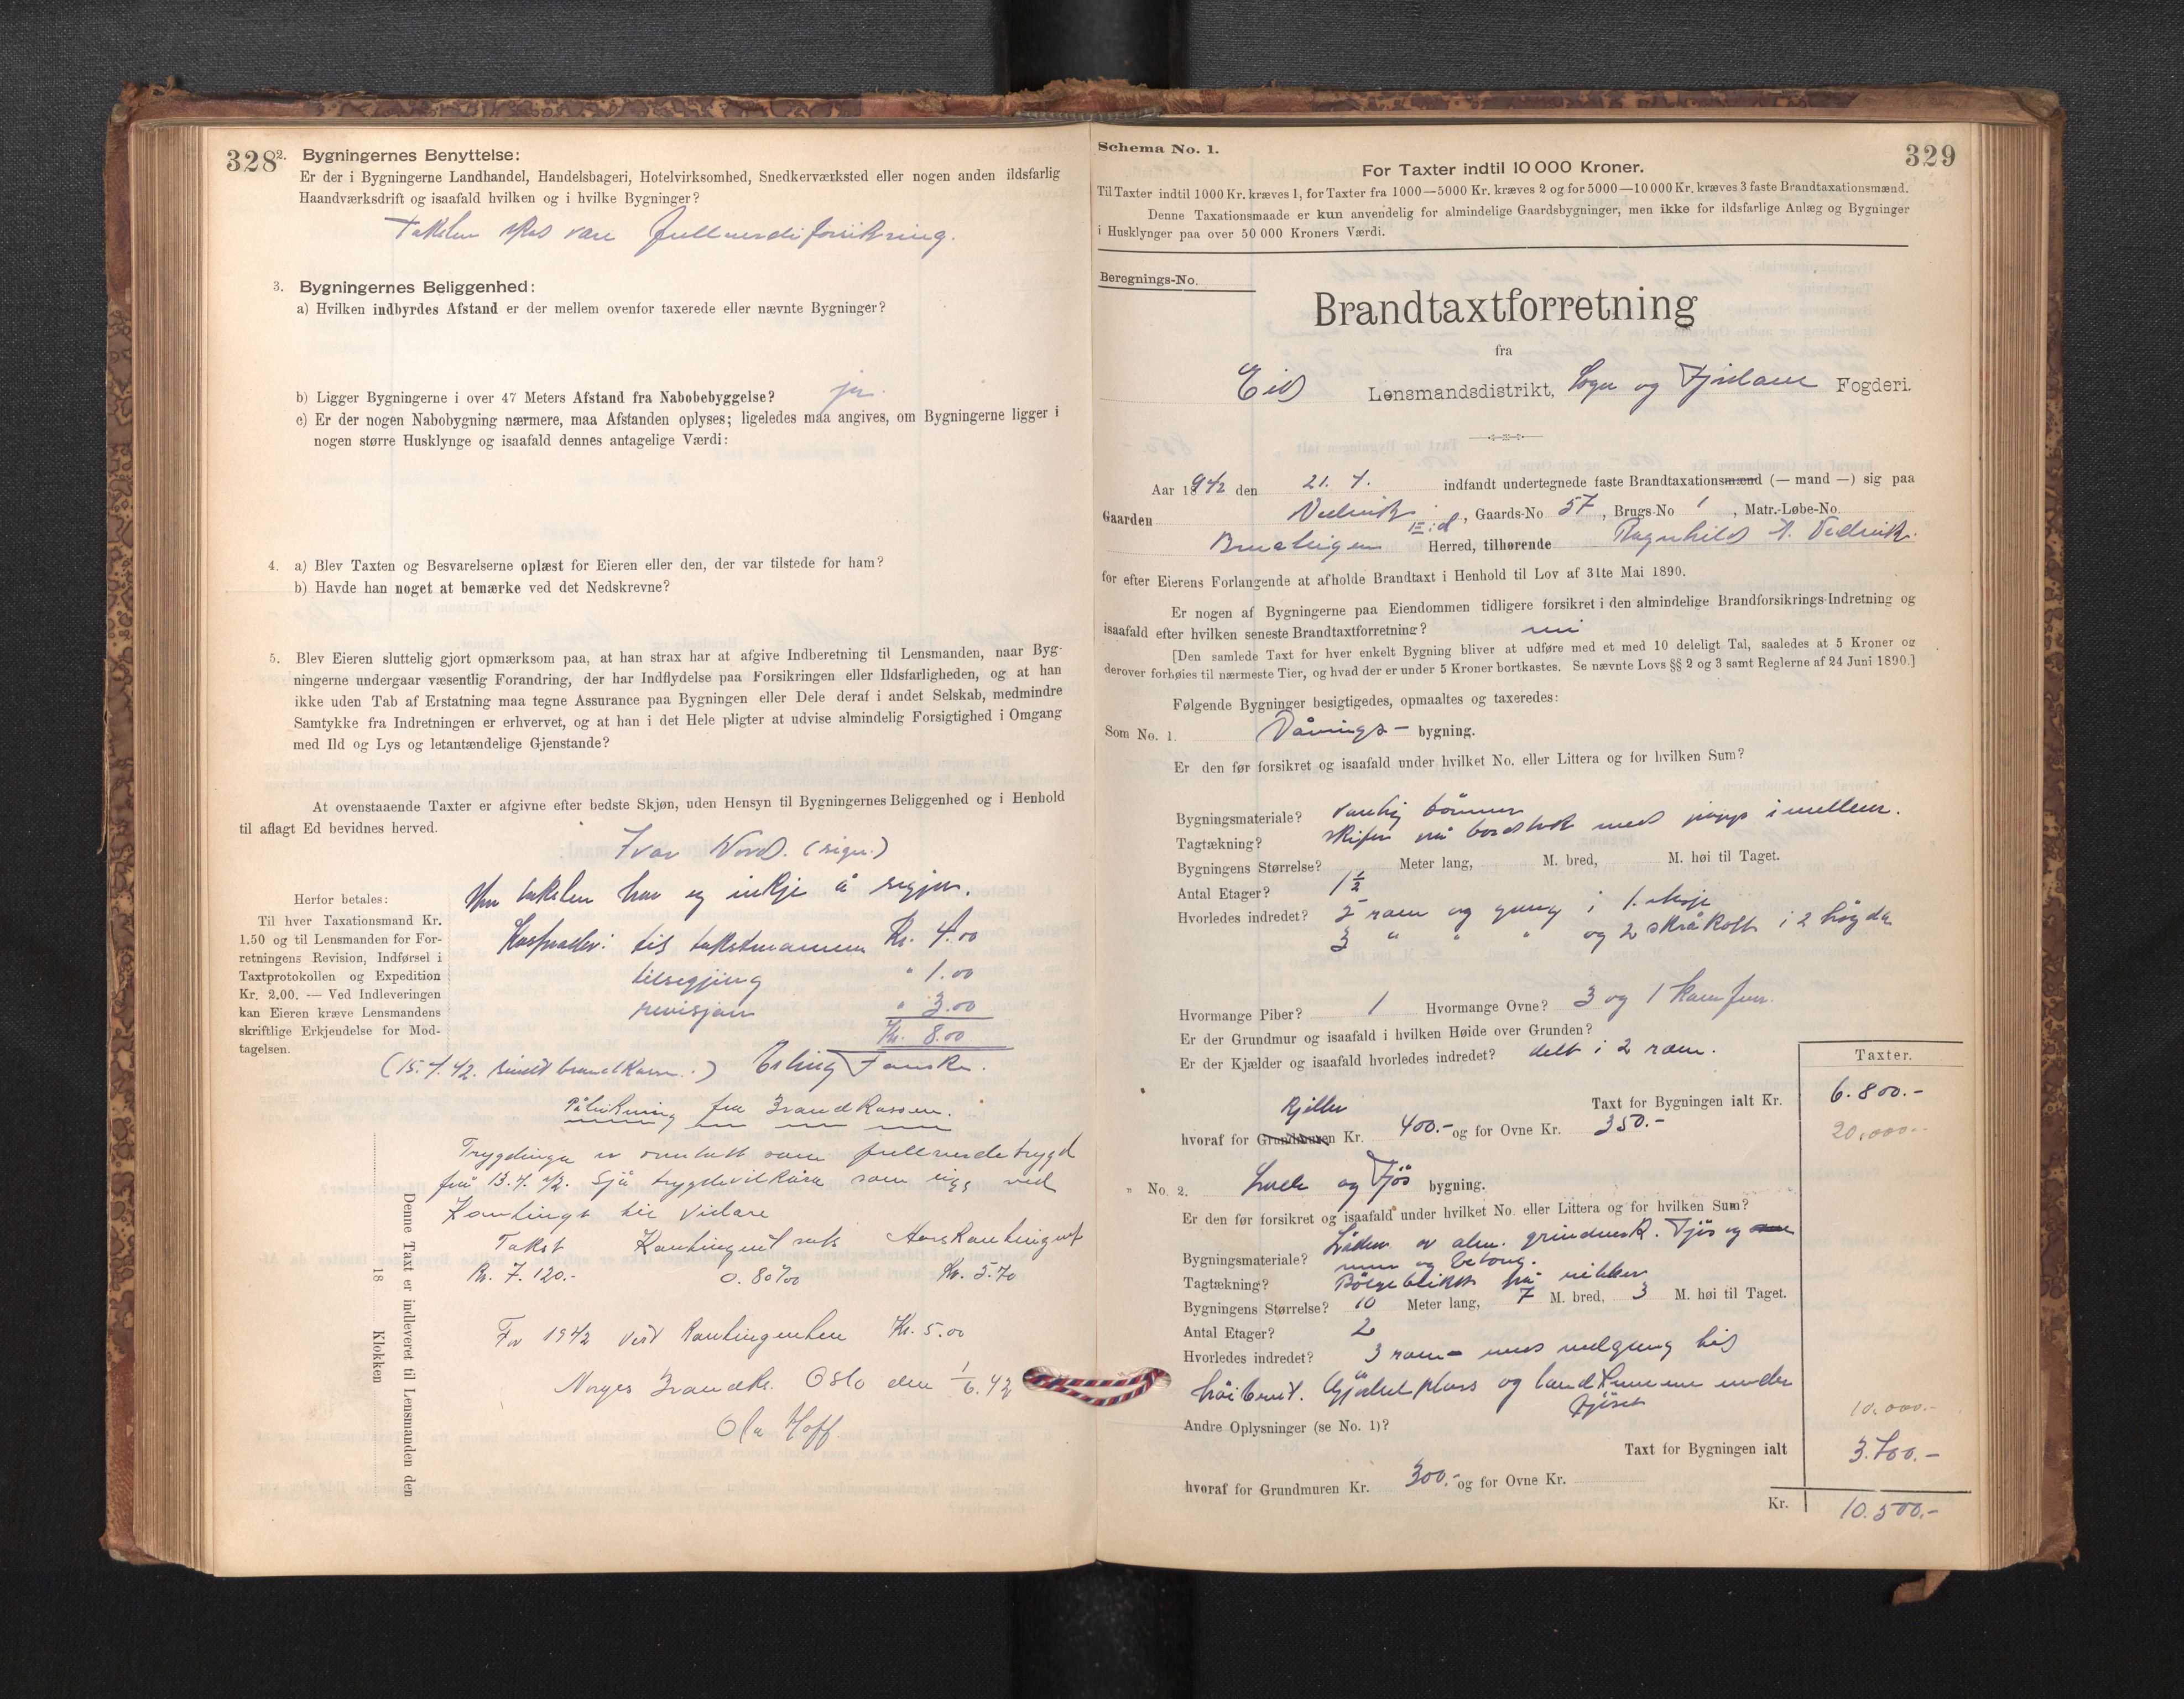 328
2. Bygningernes Benyttelse:
Er der i Bygningerne Landhandel, Handelsbageri, Hotelvirksomhed, Snedkerværksted eller nogen anden ildsfarlig
Haandværksdrift og isaafald hvilken og i hvilke Bygninger?
Taksten skal vere fullverdiforsikring.
3. Bygningernes Beliggenhed:
a) Hvilken indbyrdes Afstand er der mellem ovenfor taxerede eller nævnte Bygninger?
b) Ligger Bygningerne i over 47 Meters Afstand fra Nabobebyggelse? ja.
c) Er der nogen Nabobygning nærmere, maa Afstanden oplyses; ligeledes maa angives, om Bygningerne ligger i
nogen større Husklynge og isaafald dennes antagelige Værdi:
4. a) Blev Taxten og Besvarelserne oplæst for Eieren eller den, der var tilstede for ham?
b) Havde han noget at bemærke ved det Nedskrevne?
5. Blev Eieren sluttelig gjort opmærksom paa, at han strax har at afgive Indberetning til Lensmanden, naar Byg-
ningerne undergaar væsentlig Forandring, der har Indflydelse paa Forsikringen eller Ildsfarligheden, og at han
ikke uden Tab af Erstatning maa tegne Assurance paa Bygningen eller Dele deraf i andet Selskab, medmindre
Samtykke fra Indretningen er erhvervet, og at han i det Hele pligter at udvise almindelig Forsigtighed i Omgang
med Ild og Lys og letantændelige Gjenstande?
At ovenstaaende Taxter er afgivne efter bedste Skjøn, uden Hensyn til Bygningernes Beliggenhed og i Henhold
til aflagt Ed bevidnes herved.
Ivar Nord. (sign.)
Herfor betales:
Til hver Taxationsmand Kr.
1.50 og til Lensmanden for For-
retningens Revision, Indførsel i
Taxtprotokollen og Expedition
Kr. 2.00. — Ved Indleveringen
kan Eieren kræve Lensmandens
skriftlige Erkjendelse for Mod-
tagelsen.
Um taksten har eg inkje å segjen.
Kostnader: til takstmannen Kr. 4.00
tilsegjing " 1.00
revisjon " 3.00
Kr. 8.00
(15.4.42. sendt brandkassen.) Erling
Påteikning fra Brandkassen.
Trygdinga er omtatt som fullverdetrygd
frå 13.4. 42. Sjå trygdevilkåra som ligg ved
Kontinga til vidare
Takst Kontingent sats Aarskontingent
Kr. 7.120.- 0.80 ‰ Kr. 5.70
For 1942 vert kontingenten Kr. 5.00
Norges Brandk. Oslo den 1/6. 42
Ola Hoff
Denne Taxt er indleveret til Lensmanden den
18 Klokken
329
Schema No. 1.
For Taxter indtil 10 000 Kroner.
Til Taxter indtil 1000 Kr. kræves 1, for Taxter fra 1000—5000 Kr. kræves 2 og for 5000—10 000 Kr. kræves 3 faste Brandtaxationsmænd.
Denne Taxationsmaade er kun anvendelig for almindelige Gaardsbygninger, men ikke for ildsfarlige Anlæg og Bygninger
i Husklynger paa over 50 000 Kroners Værdi.
Beregnings-No.
Brandtaxtforretning
fra
Eid Lensmandsdistrikt, Sogn og Fjordane Fogderi.
Aar 1942 den 21. 4. indfandt undertegnede faste Brandtaxationsmænd (— mand —) sig paa
Gaarden Vedvik, Gaards-No 57, Brugs-No 1, Matr.-Løbe-No.
Eid Herred, tilhørende Ragnhild A. Vedvik.
for efter Eierens Forlangende at afholde Brandtaxt i Henhold til Lov af 31te Mai 1890.
Er nogen af Bygningerne paa Eiendommen tidligere forsikret i den almindelige Brandforsikrings-Indretning og
isaafald efter hvilken seneste Brandtaxtforretning? nei
[Den samlede Taxt for hver enkelt Bygning bliver at udføre med et med 10 deleligt Tal, saaledes at 5 Kroner og
derover forhøies til nærmeste Tier, og hvad der er under 5 Kroner bortkastes. Se nævnte Lovs §§ 2 og 3 samt Reglerne af 24 Juni 1890.]
Følgende Bygninger besigtigedes, opmaaltes og taxeredes:
Som No. 1. Vånings- bygning.
Er den før forsikret og isaafald under hvilket No. eller Littera og for hvilken Sum?
Bygningsmateriale? vanlig tømmer
Tagtækning? skifer på bordtak med papp imellem.
Bygningens Størrelse? Meter lang, M. bred, M. høi til Taget.
Antal Etager? 1 1/2
Hvorledes indredet? 5 rom og gang i 1. høgd
3 " " " og 2 skråkott i 2 høgda
Hvormange Piber? 1 Hvormange Ovne? 3 og 1 komfur.
Er der Grundmur og isaafald i hvilken Høide over Grunden?
Er der Kjælder og isaafald hvorledes indredet? delt i 2 rom.
Taxter.
Taxt for Bygningen ialt Kr. 6.800.-
20.000.-
Kjeller
hvoraf for Grundmuren Kr. 400.- og for Ovne Kr. 350.-
" No. 2. Løde og Fjøs bygning.
Er den før forsikret og isaafald under hvilket No. eller Littera og for hvilken Sum?
Løden av alm. grindverk. Fjøs og
Bygningsmateriale? mur og betong.
Tagtækning? Bølgeblikk på
Bygningens Størrelse? 10 Meter lang, 7 M. bred, 3 M. høi til Taget.
Antal Etager? 2
Hvorledes indredet? 3 rom - med nedgang til
Gjødselplass og landkum under
Fjøset
Andre Oplysninger (se No. 1)?
10.000.-
Taxt for Bygningen ialt 3.700.-
hvoraf for Grundmuren Kr. 300.- og for Ovne Kr.
Kr. 10.500.-